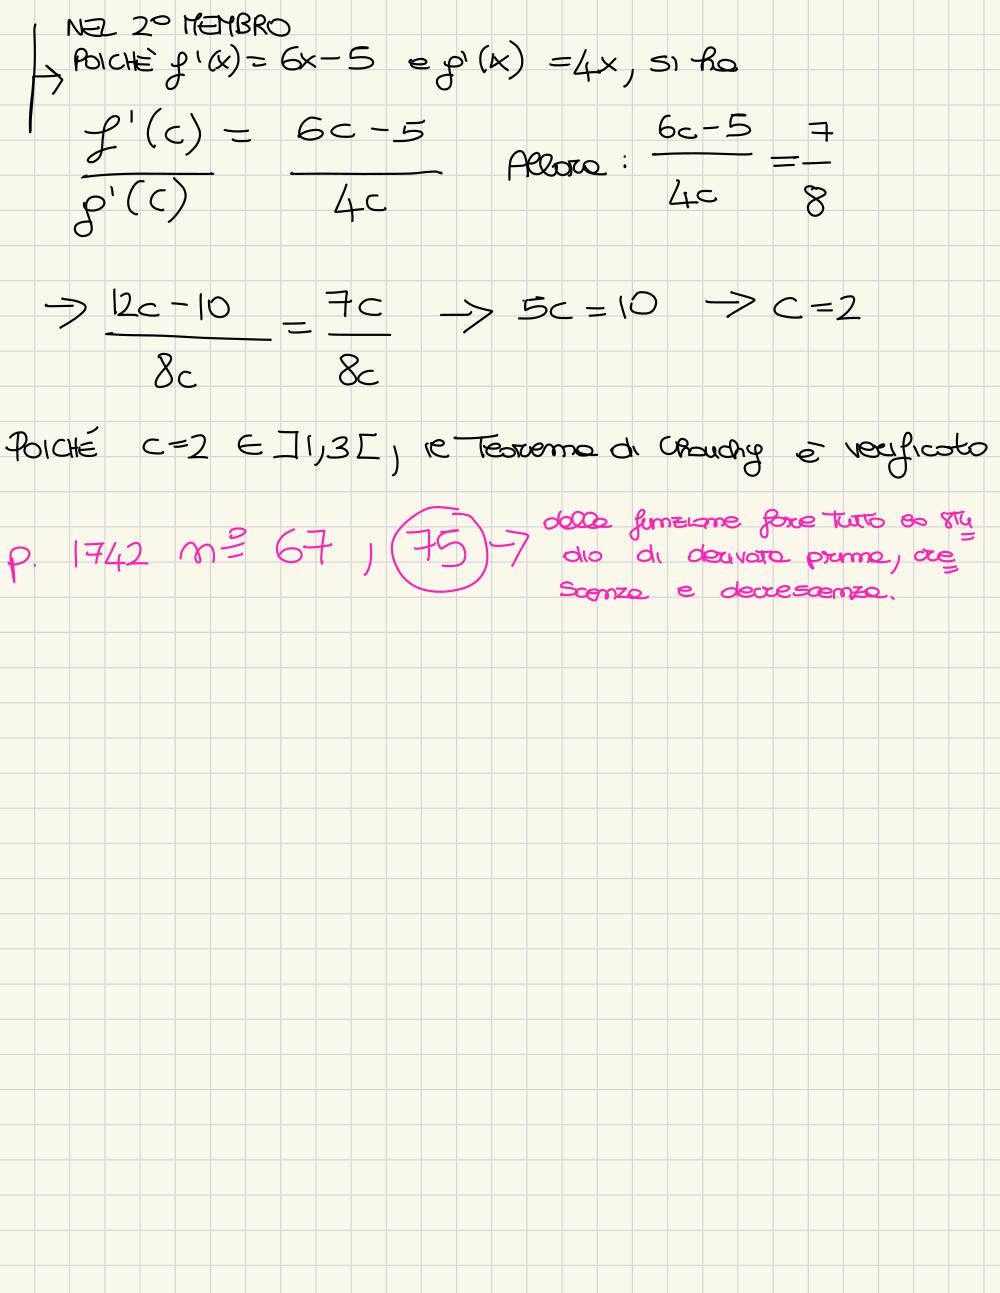 NEL 2° MEMBRO
→ POICHÈ f'(x) = 6x-5 e g'(x) = 4x, si ha
f'(c)/g'(c) = (6c-5)/4c Allora: (6c-5)/4c = 7/8
→ (12c-10)/8c = 7c/8c → 5c = 10 → c = 2
POICHÉ c=2 ∈ ]1,3[, il Teorema di Chauchy è verificato
p. 1742 n° 67, 75 → della funzione fare tutto lo stu
dio di derivata prima, cre
scenza e decrescenza.